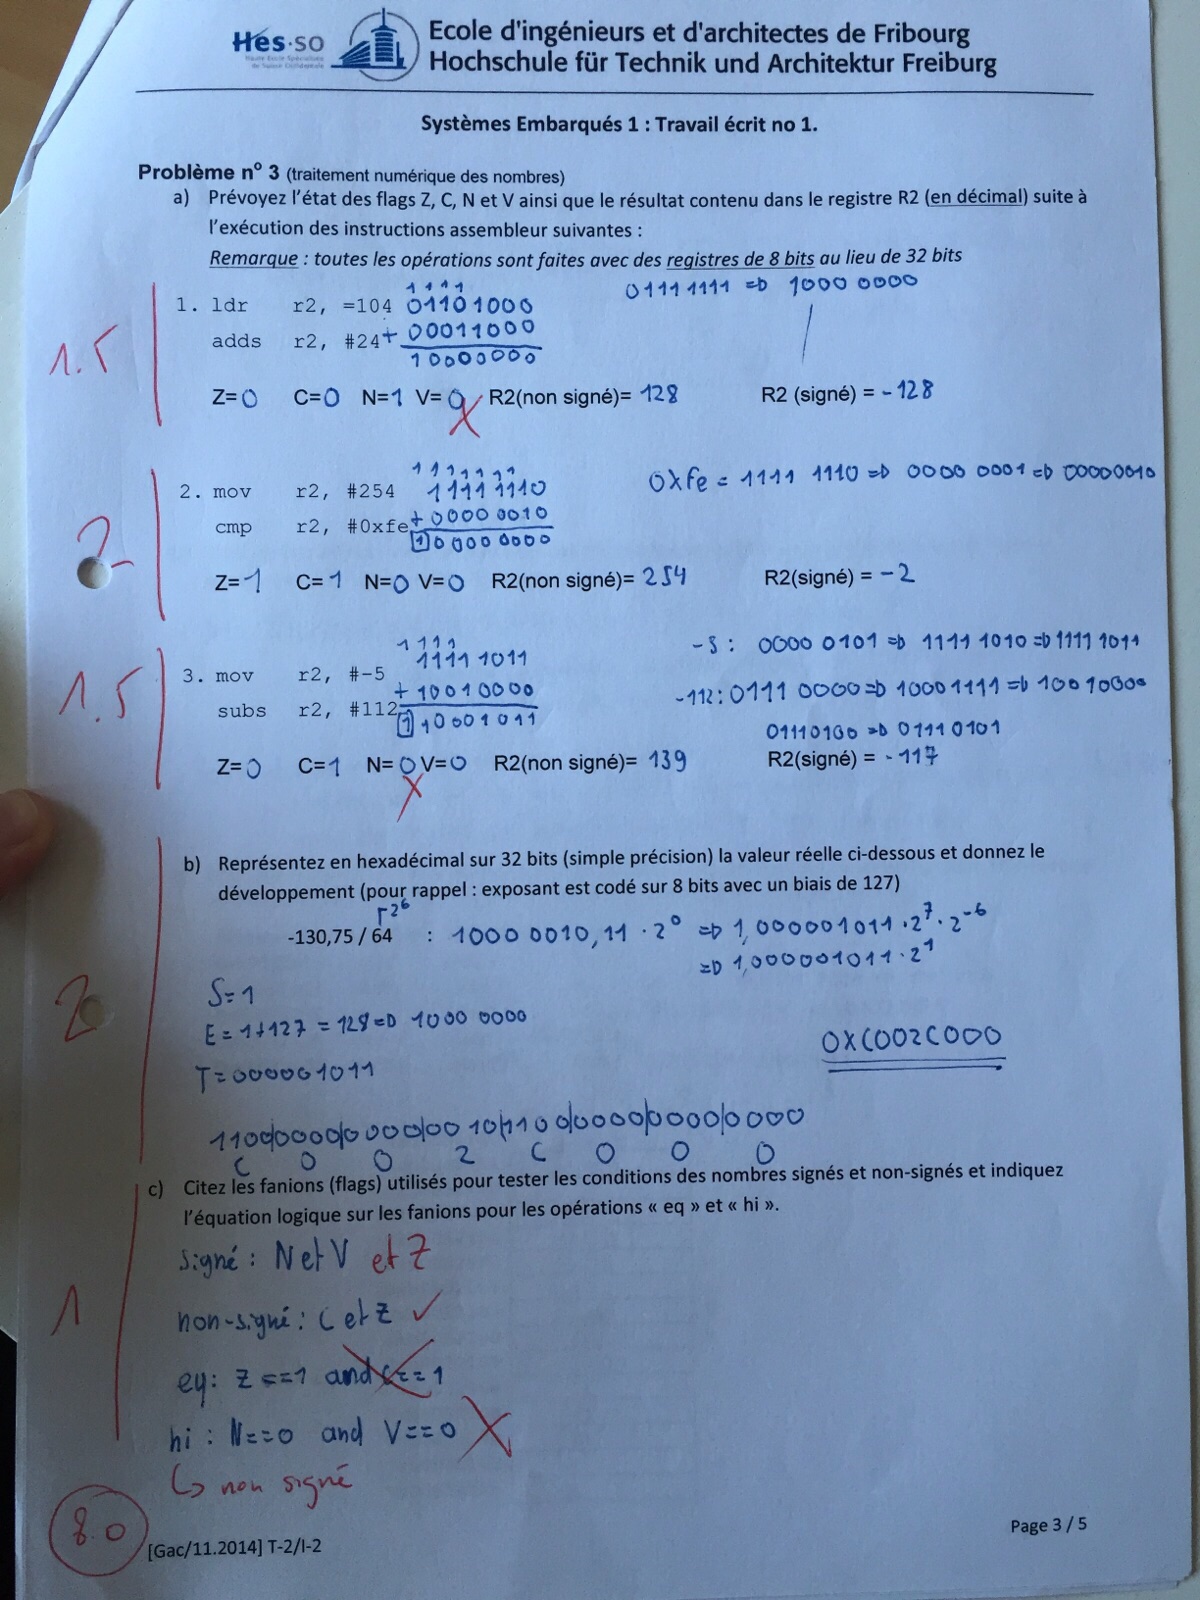 Hes·so
Haute Ecole Spécialisée
de Suisse Occidentale
Ecole d'ingénieurs et d'architectes de Fribourg
Hochschule für Technik und Architektur Freiburg
Systèmes Embarqués 1 : Travail écrit no 1.
Problème nº 3 (traitement numérique des nombres)
a) Prévoyez l'état des flags Z, C, N et V ainsi que le résultat contenu dans le registre R2 (en décimal) suite à
l'exécution des instructions assembleur suivantes :
Remarque : toutes les opérations sont faites avec des registres de 8 bits au lieu de 32 bits
1111
01111111 => 1000 0000
1. ldr r2, =104 01101000
adds r2, #24 + 00011000
10000000
1.5
Z=0 C=0 N=1 V=0 X R2(non signé)= 128 R2 (signé) = -128
1111111
2. mov r2, #254 1111 1110
0xfe = 1111 1110 => 0000 0001 => 00000010
cmp r2, #0xfe + 0000 0010
1 0000 0000
2
Z=1 C=1 N=0 V=0 R2(non signé)= 254 R2(signé) = -2
1111
-5 : 0000 0101 => 1111 1010 => 1111 1011
3. mov r2, #-5 1111 1011
-112: 0111 0000 => 10001111 => 10010000
subs r2, #112 + 10010000
1 10001011
01110100 => 01110101
1.5
Z=0 C=1 N=0 V=0 R2(non signé)= 139 R2(signé) = -117
X
b) Représentez en hexadécimal sur 32 bits (simple précision) la valeur réelle ci-dessous et donnez le
développement (pour rappel : exposant est codé sur 8 bits avec un biais de 127)
2^6
-130,75 / 64 : 1000 0010,11 · 2^0 => 1,000001011 · 2^7 · 2^-6
=> 1,000001011 · 2^1
2
S=1
E = 1+127 = 128 => 1000 0000
0xC002C000
T=000001011
1100|0000|0000|0010|1100|0000|0000|0000
C 0 0 2 C 0 0 0
c) Citez les fanions (flags) utilisés pour tester les conditions des nombres signés et non-signés et indiquez
l'équation logique sur les fanions pour les opérations « eq » et « hi ».
signé : N et V et Z
1
non-signé : C et Z ✓
eq: Z==1 and C==1
hi : N==0 and V==0 X
↳ non signé
8.0
[Gac/11.2014] T-2/I-2
Page 3 / 5